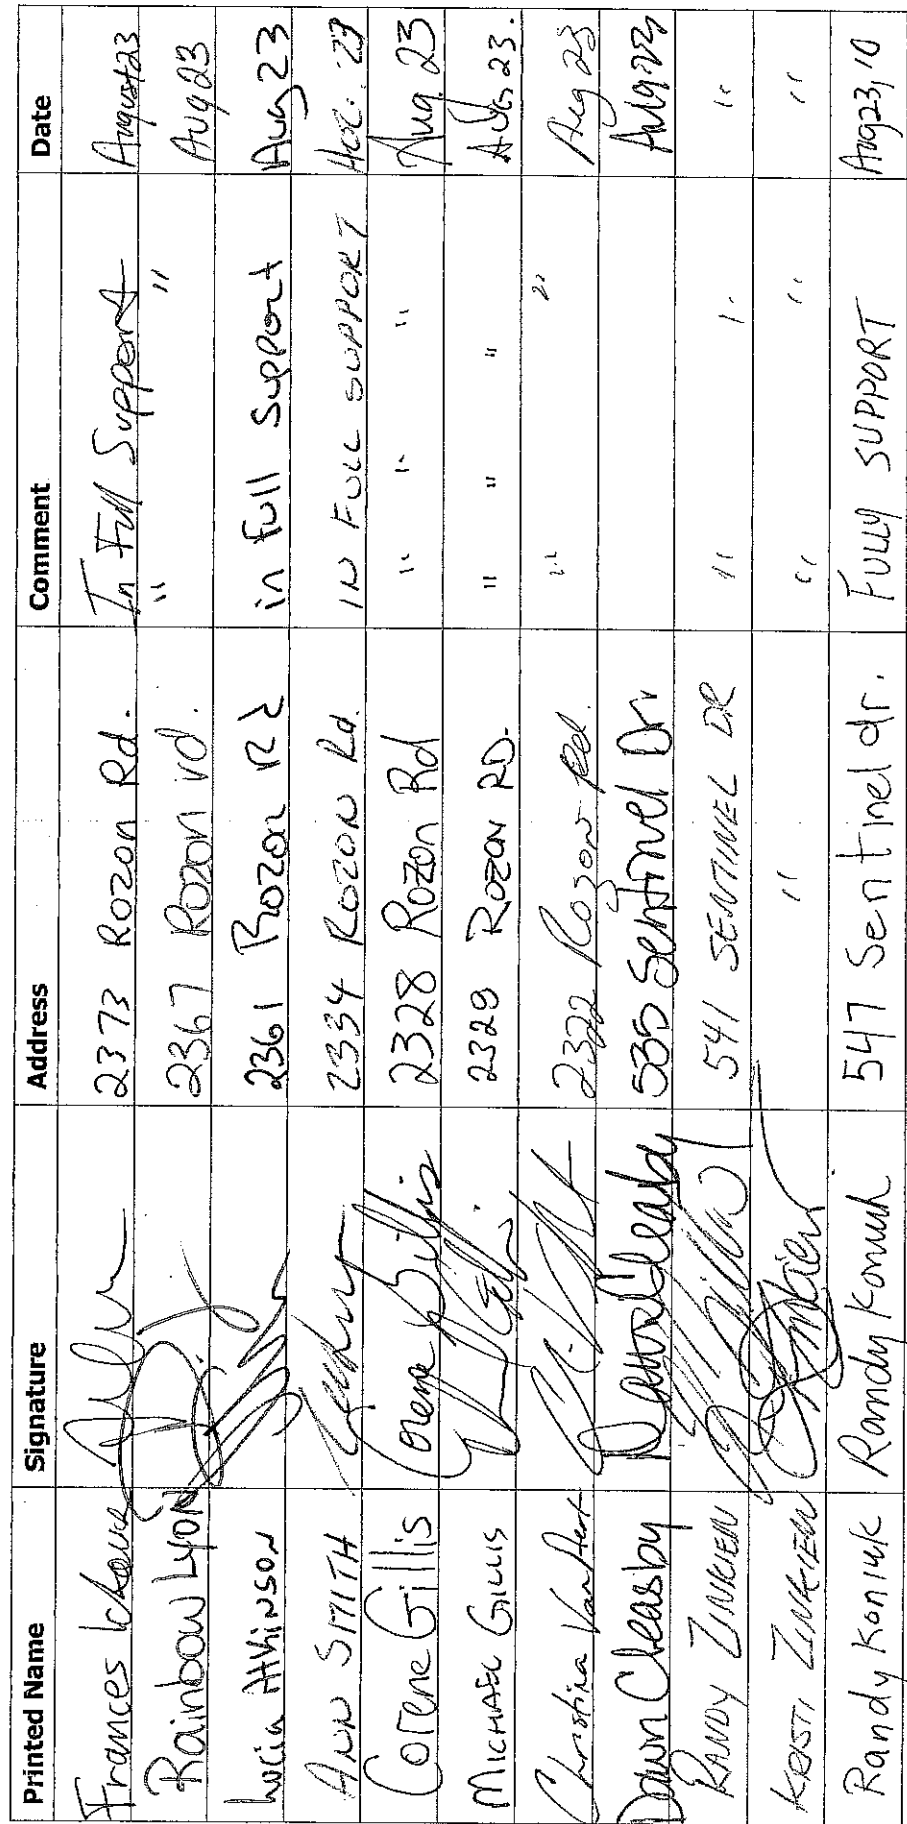 Printed Name Signature Address Comment Date
Frances 2373 Rozon Rd. In Full Support August 23
Rainbow Lyon 2367 Rozon rd. " " Aug 23
Lucia Atkinson 2361 Rozon Rd in full support Aug 23
ANN SMITH 2334 ROZON Rd. IN FULL SUPPORT 23
Corene Gillis Corene Gillis 2328 Rozon Rd " " " Aug. 23
MICHAEL GILLIS 2329 ROZON RD. " " " Aug. 23.
Christina 2322 Rozon Rd. " " Aug 23
Dawn Cleasby Dawn Cleasby 535 Sentinel Dr Aug 23
RANDY ZINKIEW 541 SENTINEL DR " " "
KRISTI ZINKIEW " " " "
Randy Koniuk Randy Koniuk 547 Sentinel dr. FULLY SUPPORT Aug 23, 10